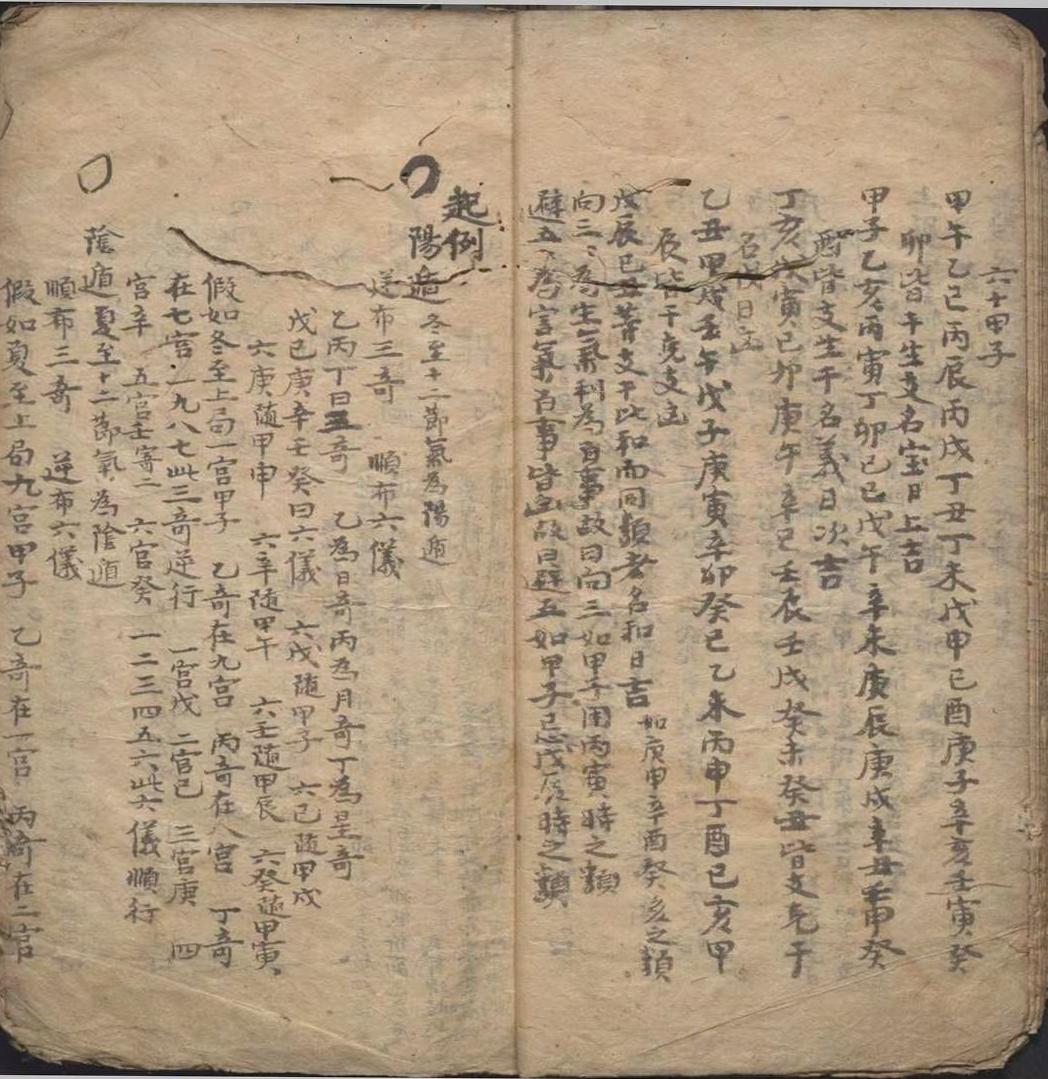 六十甲子
甲午乙巳丙辰丙戌丁丑丁未戊申己酉庚子辛亥壬寅癸
卯皆干生支名宝日上吉
甲子乙亥丙寅丁卯己巳戊午辛未庚辰庚戌辛丑壬申癸
酉皆支生干名義日次吉
丁亥戊寅己卯庚午辛巳壬辰壬戌癸未癸丑皆支克干
名伐日凶
乙丑甲戌壬午戊子庚寅辛卯癸巳乙未丙申丁酉己亥甲
辰皆干克支凶
戊辰己丑等支干比和而同類者名和日吉 如庚申辛酉癸亥之類
向三三為生氣利為百事故曰向三如甲子用丙寅時之類
避五五為害氣百事皆凶故曰避五如甲子忌戊辰時之類
起例
陽遁 冬至十二節氣為陽遁
逆布三奇 順布六儀
乙丙丁曰三奇 乙為日奇丙為月奇丁為星奇
戊己庚辛壬癸曰六儀 六戊随甲子 六己随甲戌
六庚随甲申 六辛随甲午 六壬随甲辰 六癸随甲寅
假如冬至上局一宫甲子 乙奇在九宫 丙奇在八宫 丁奇
在七宫 一九八七此三奇逆行 一宫戊 二宫己 三宫庚 四
宫辛 五宫壬寄二 六宫癸 一二三四五六此六儀順行
陰遁 夏至十二節氣為陰遁
順布三奇 逆布六儀
假如夏至上局九宫甲子 乙奇在一宫 丙奇在二宫